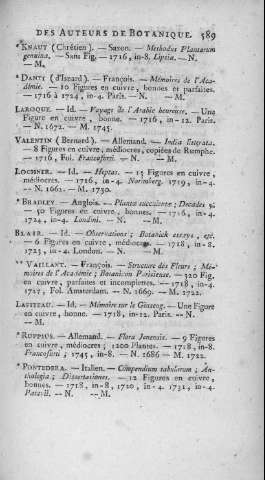 DES AUTEURS DE BOTANIQUE. 589
* KNAUT (Chrétien). — Saxon. — Methodus Plantarum
genuina. — Sans Fig. — 1716, in-8. Lipsiæ. — N.
— M.
* DANTI (d'Isnard). — François. — Mémoires de l'Aca-
démie. — 10 Figures en cuivre, bonnes et parfaites.
— 1716 à 1724, in-4. Paris. — N. — M.
LAROQUE. — Id. — Voyage de l'Arabie heureuse. — Une
Figure en cuivre, bonne. — 1716, in-12. Paris.
— N. 1672. — M. 1745.
VALENTIN (Bernard). — Allemand. — India litterata.
— 8 Figures en cuivre, médiocres, copiées de Rumphe.
— 1716, Fol. Francofurti. — N. — M.
LOCHNER. — Id. — Heptas. — 15 Figures en cuivre,
médiocres. — 1716, in-4. Norimberg. 1719, in-4.
— N. 1662. — M. 1730.
* BRADLEY. — Anglois. — Planta succulenta; Decades 5.
— 50 Figures en cuivre, bonnes. — 1716, in-4.
1724, in-4. Londini. — N. — M.
BLAIR. — Id. — Observations; Botanick essays, etc.
— 6 Figures en cuivre, médiocres. — 1718, in-8.
1723, in-4. London. — N. — M.
** VAILLANT. — François. — Structure des Fleurs; Mé-
moires de l'Académie; Botanicon Parisiense. — 320 Fig.
en cuivre, parfaites et incomplettes. — 1718, in-4.
1727, Fol. Amsterdam. N. 1669. — M. 1722.
LAFITEAU. — Id. — Mémoire sur le Ginseng. — Une Figure
en cuivre, bonne. — 1718, in-12. Paris. — N.
— M.
* RUPPIUS. — Allemand. — Flora Jenensis. — 9 Figures
en cuivre, médiocres; 1200 Plantes. — 1718, in-8.
Francofurti; 1745, in-8. — N. 1686 — M. 1722.
* PONTEDERA. — Italien. — Compendium tabularum; An-
thologia; Dissertationes. — 12 Figures en cuivre,
bonnes. — 1718, in-8, 1720, in-4. 1731, in-4.
Patavii. — N. — M.